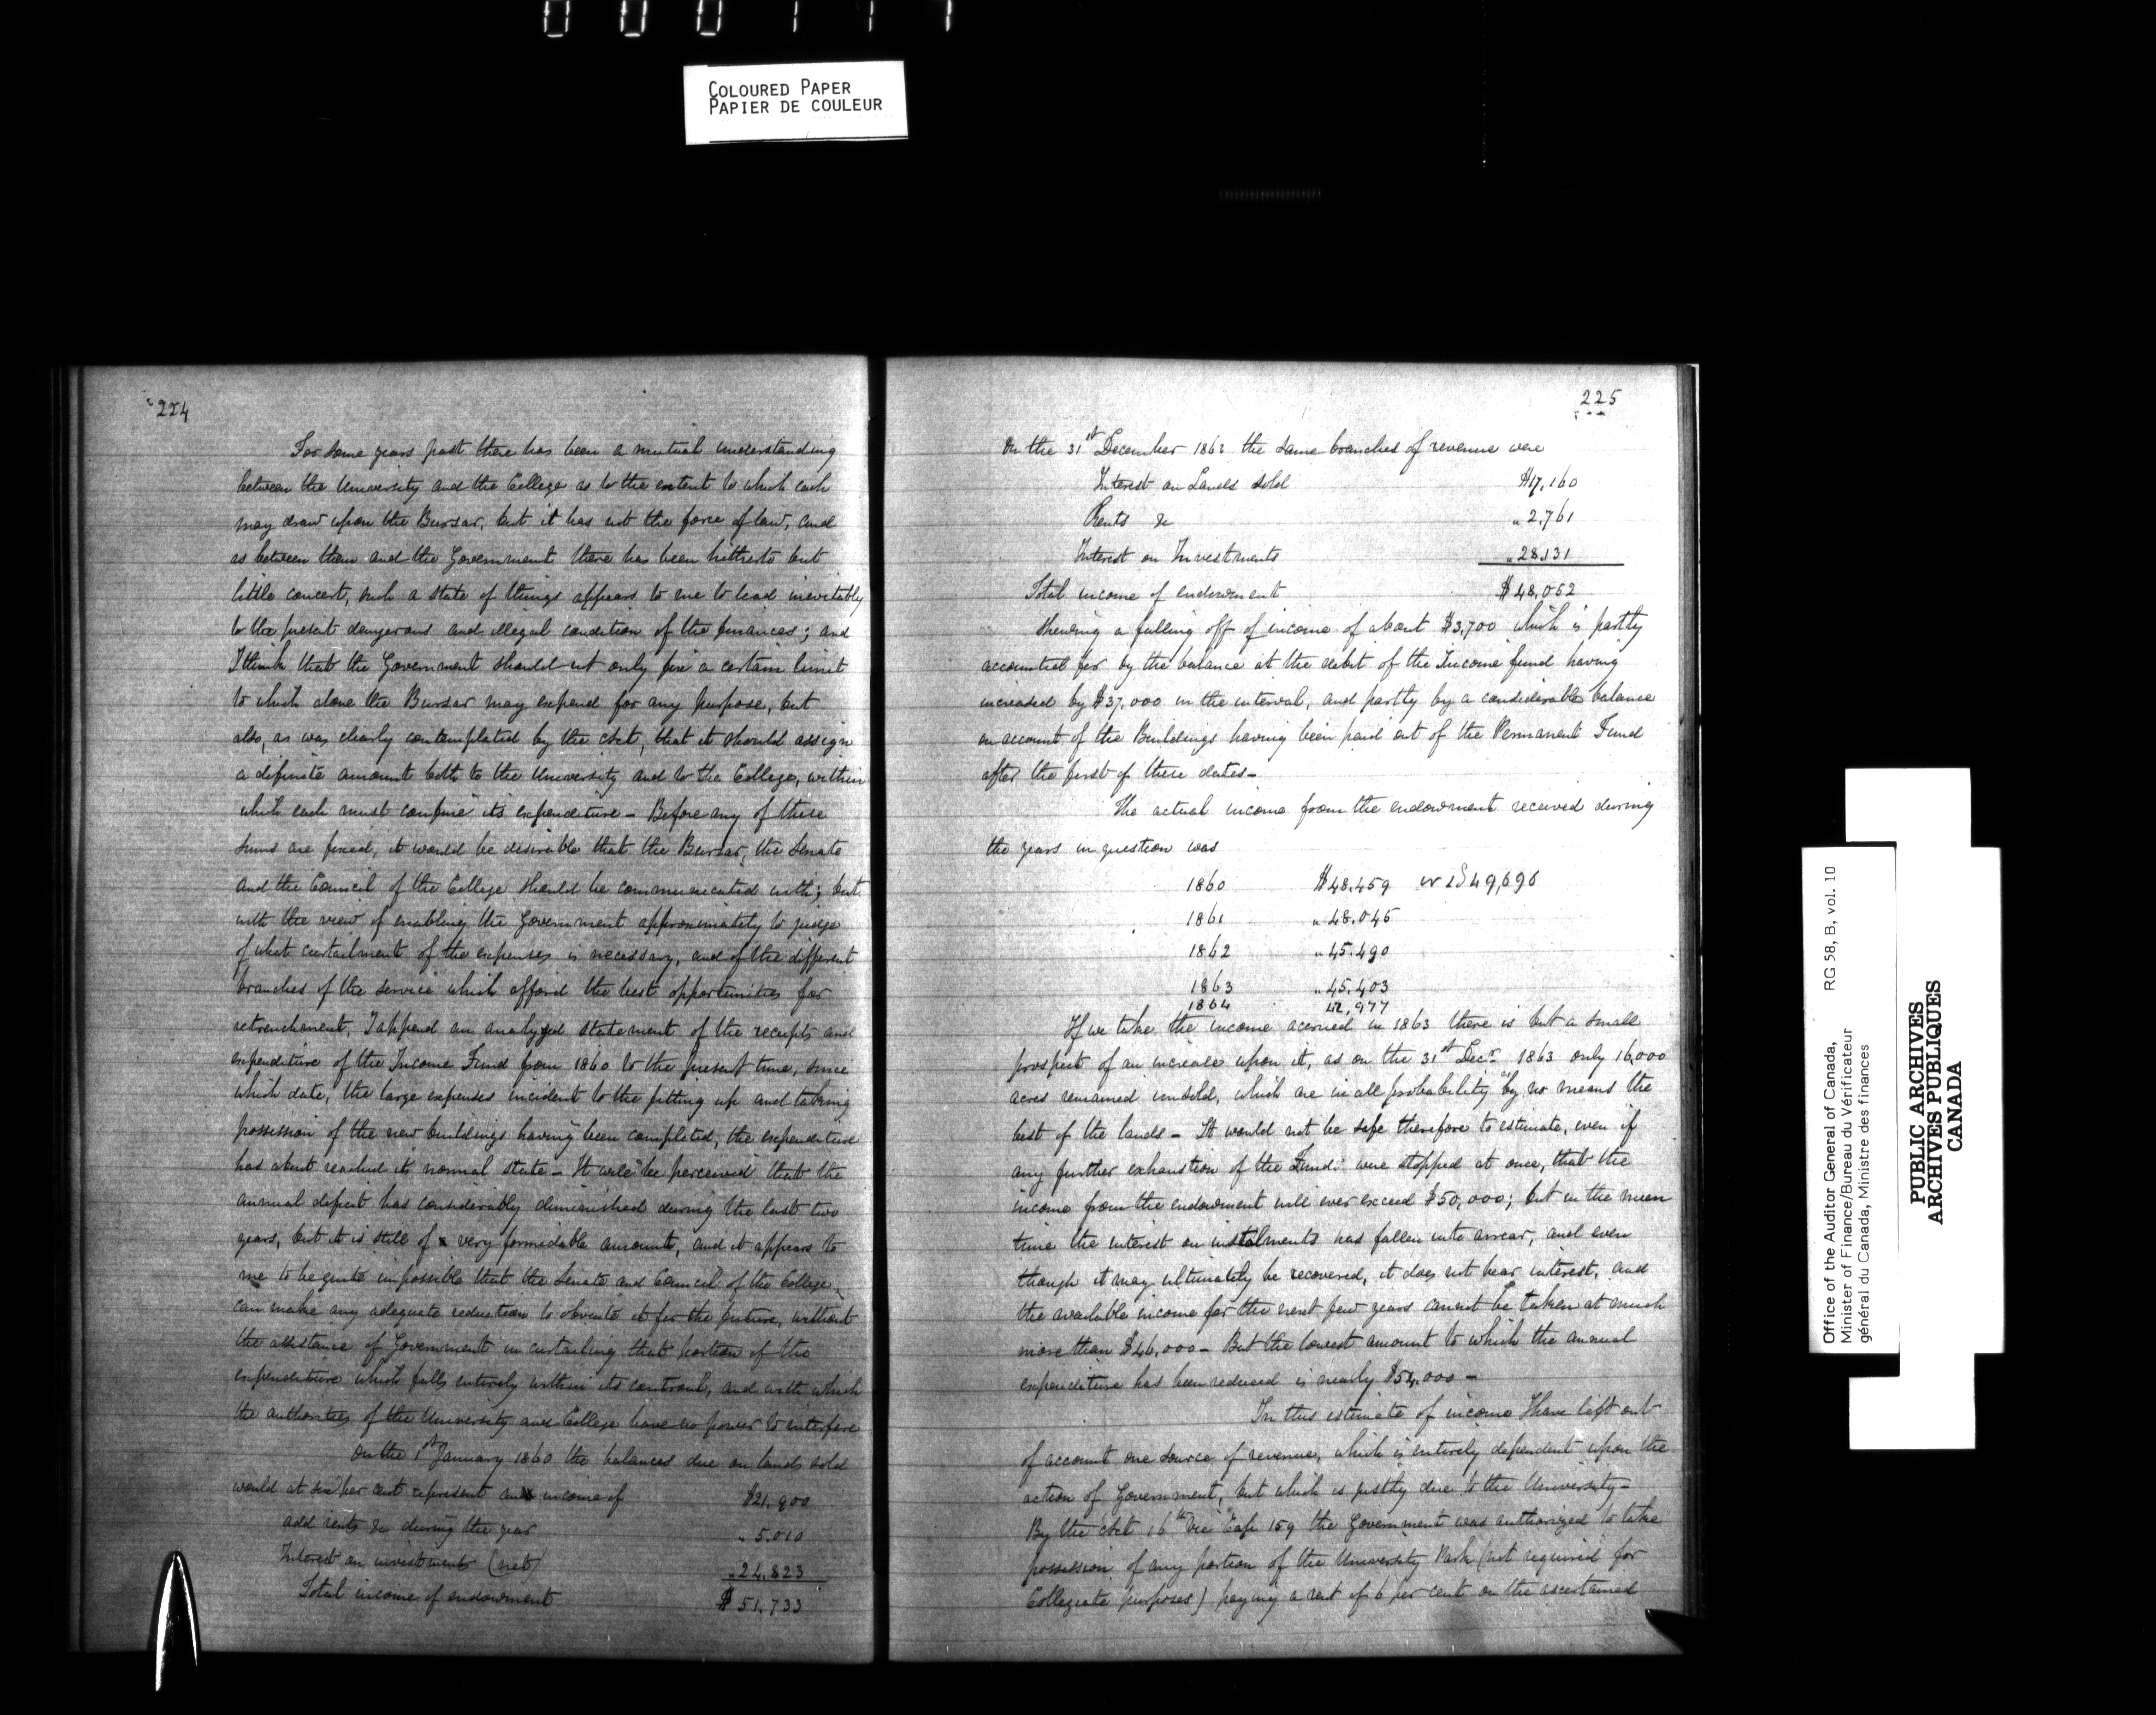 000111
COLOURED PAPER
PAPIER DE COULEUR
224
For some years past there has been a mutual understanding
between the University and the College as to the extent to which each
may draw upon the Bursar, but it has not the force of law, and
as between them and the Government there has been hitherto but
little concert, such a state of things appears to me to lead inevitably
to the present dangerous and illegal condition of the finances; and
I think that the Government should not only fix a certain limit
to which alone the Bursar may expend for any purpose, but
also, as was clearly contemplated by the Act, that it should assign
a definite amount both to the University and to the College, within
which each must confine its expenditure – Before any of these
sums are fixed, it would be desirable that the Bursar, the Senate
and the Council of the College should be communicated with; but
with the view of enabling the Government approximately to judge
of what curtailment of the expenses is necessary, and of the different
branches of the service which afford the best opportunities for
retrenchment, I append an analyzed statement of the receipts and
expenditure of the Income Fund from 1860 to the present time, since
which date, the large expenses incident to the fitting up and taking
possession of the new buildings having been completed, the expenditure
has about reached its normal state – It will be perceived that the
annual deficit has considerably diminished during the last two
years, but it is still of a very formidable amount, and it appears to
me to be quite impossible that the Senate and Council of the College,
can make any adequate reduction to obviate it for the future, without
the assistance of Government in curtailing that portion of the
expenditure which falls entirely within its controul, and with which
the authorities of the University and College have no power to interfere
On the 1st January 1860 the balances due on lands sold
would at six per cent represent an income of $21,900
add rents &c during the year " 5.010
Interest on investments (net) " 24.823
Total income of endowment $ 51,733
225
On the 31st December 1863 the same branches of revenue were
Interest on Lands sold $17,160
Rents &c " 2,761
Interest on Investments " 28,131
Total income of endowment $48,052
Shewing a falling off of income of about $3,700 which is partly
accounted for by the balance at the debit of the Income fund having
increased by $37,000 in the interval, and partly by a considerable balance
on account of the Buildings having been paid out of the Permanent Fund
after the first of these dates –
The actual income from the endowment received during
the years in question was
1860 $48.459 or 49,696
1861 " 48.045
1862 " 45.490
1863 " 45.403
1864 42,977
If we take the income accrued in 1863 there is but a small
prospect of an increase upon it, as on the 31st Decr 1863 only 16,000
acres remained unsold, which are in all probability by no means the
best of the lands – It would not be safe therefore to estimate, even if
any further exhaustion of the Funds were stopped at once, that the
income from the endowment will ever exceed $50,000; but in the mean
time the interest on instalments has fallen into arrear, and even
though it may ultimately be recovered, it does not bear interest, and
the available income for the next few years cannot be taken at much
more than $46,000 – But the lowest amount to which the annual
expenditure has been reduced is nearly $54,000 –
In this estimate of income I have left out
of account one source of revenue, which is entirely dependent upon the
action of Government, but which is justly due to the University –
By the Act 16th Vic Cap 159 the Government was authorized to take
possession of any portion of the University Park (not required for
Collegiate purposes) paying a rent of 6 per cent on the ascertained
Office of the Auditor General of Canada, RG 58, B, vol. 10
Minister of Finance/Bureau du Vérificateur
général du Canada, Ministre des finances
PUBLIC ARCHIVES
ARCHIVES PUBLIQUES
CANADA